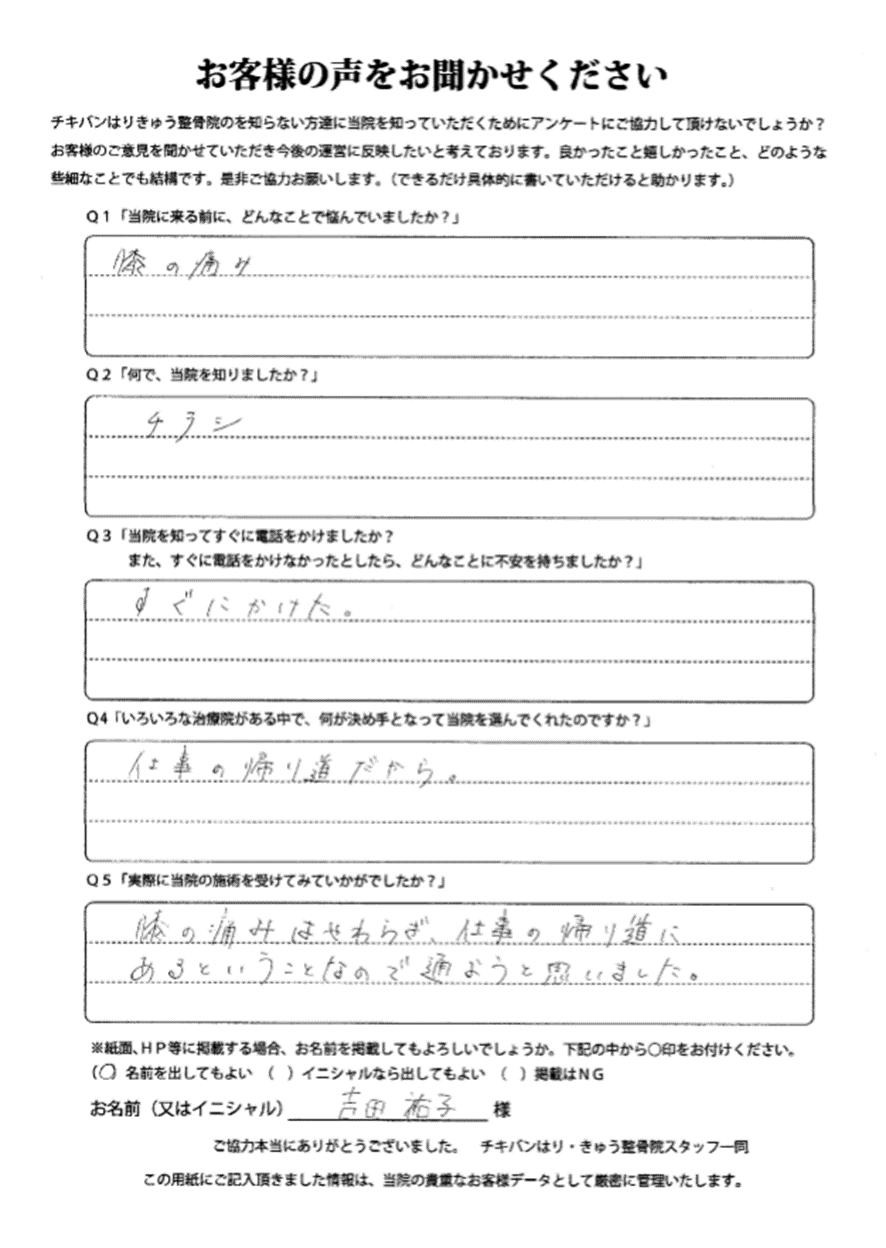 お客様の声をお聞かせください
チキバンはりきゅう整骨院のを知らない方達に当院を知っていただくためにアンケートにご協力して頂けないでしょうか？
お客様のご意見を聞かせていただき今後の運営に反映したいと考えております。良かったこと嬉しかったこと、どのような
些細なことでも結構です。是非ご協力お願いします。（できるだけ具体的に書いていただけると助かります。）
Q１「当院に来る前に、どんなことで悩んでいましたか？」
膝の痛み
Q２「何で、当院を知りましたか？」
チラシ
Q３「当院を知ってすぐに電話をかけましたか？
また、すぐに電話をかけなかったとしたら、どんなことに不安を持ちましたか？」
すぐにかけた。
Q4「いろいろな治療院がある中で、何が決め手となって当院を選んでくれたのですか？」
仕事の帰り道だから。
Q５「実際に当院の施術を受けてみていかがでしたか？」
膝の痛みはやわらぎ、仕事の帰り道に
あるということなので通おうと思いました。
※紙面、ＨＰ等に掲載する場合、お名前を掲載してもよろしいでしょうか。下記の中から〇印をお付けください。
（〇）名前を出してもよい （ ）イニシャルなら出してもよい （ ）掲載はＮＧ
お名前（又はイニシャル） 吉田 祐子 様
ご協力本当にありがとうございました。 チキバンはり・きゅう整骨院スタッフ一同
この用紙にご記入頂きました情報は、当院の貴重なお客様データとして厳密に管理いたします。